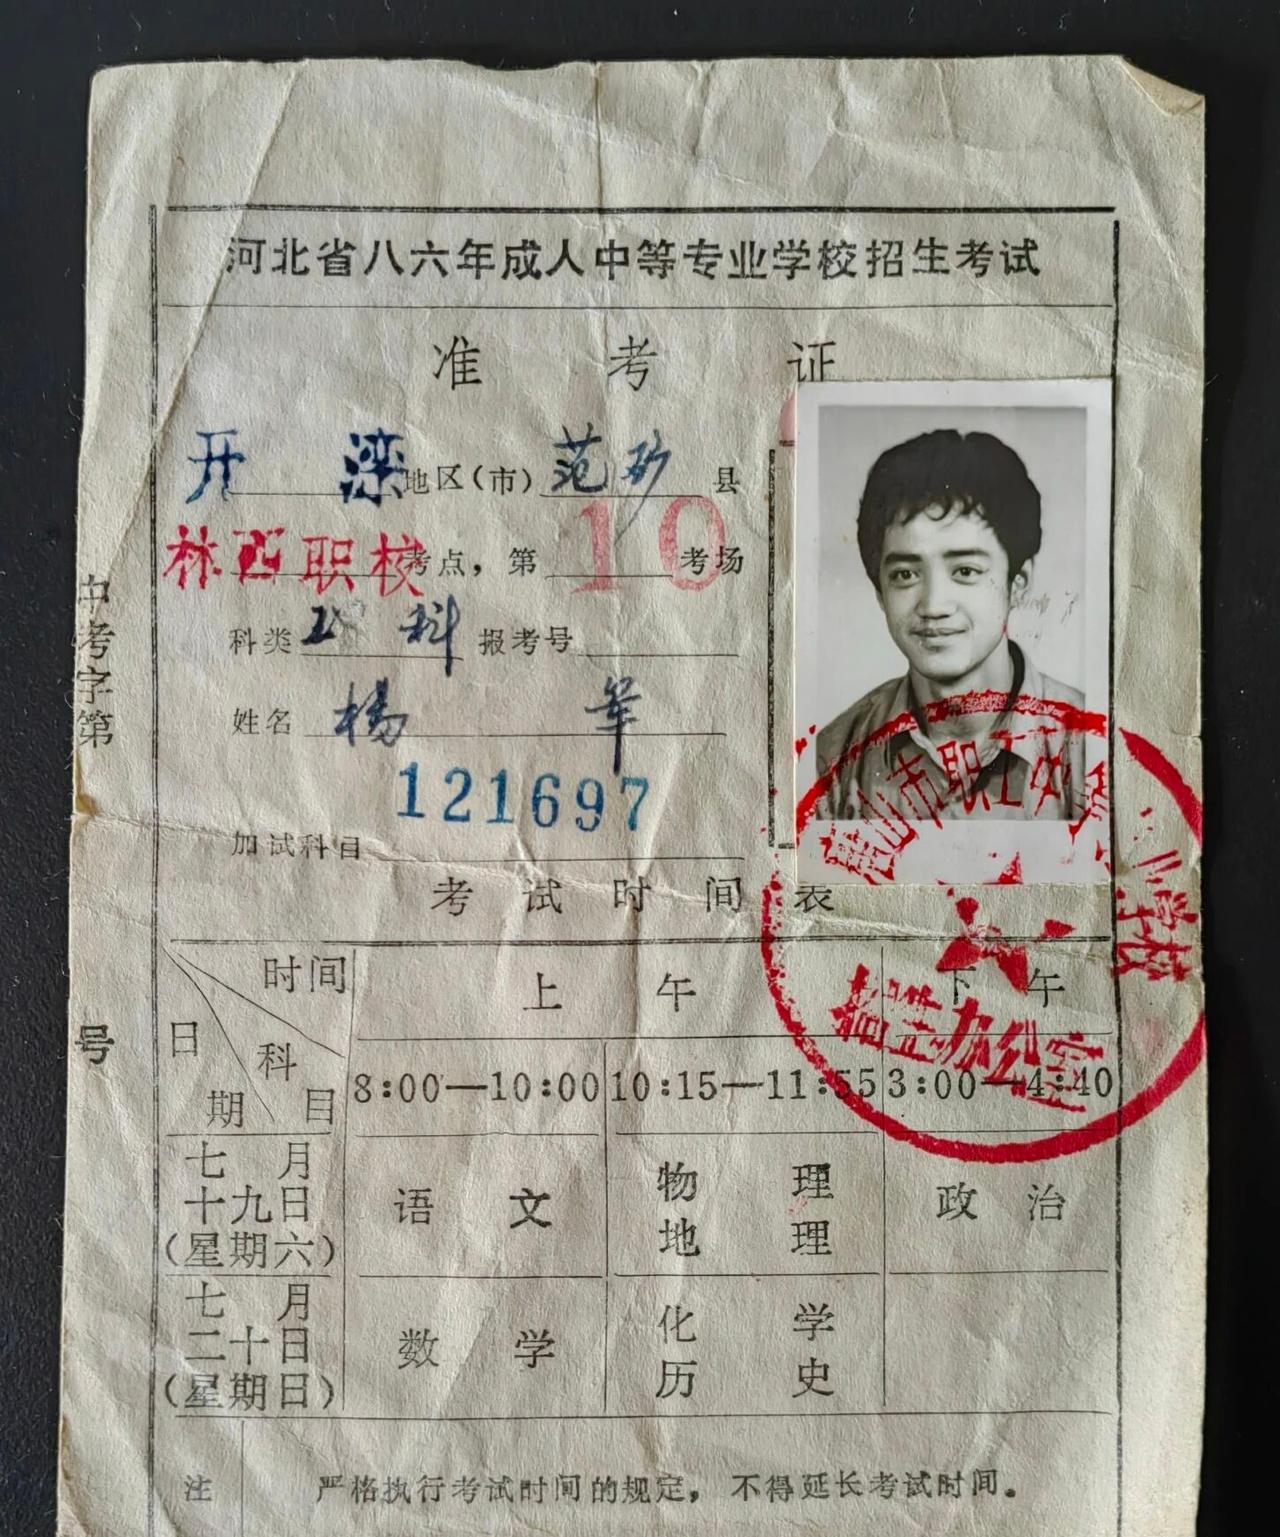 河北省八六年成人中等专业学校招生考试
准考证
开滦地区(市)范矿县
林西职校考点，第10考场
科类 科 报考号
姓名 杨
121697
加试科目
中考字第 号
唐山市职工中 学校
招生办公室
考试时间表
时间 日期 科目
上午 下午
8:00—10:00 10:15—11:55 3:00—4:40
七月十九日(星期六) 语文 物理 地理 政治
七月二十日(星期日) 数学 化学 历史
注 严格执行考试时间的规定，不得延长考试时间。